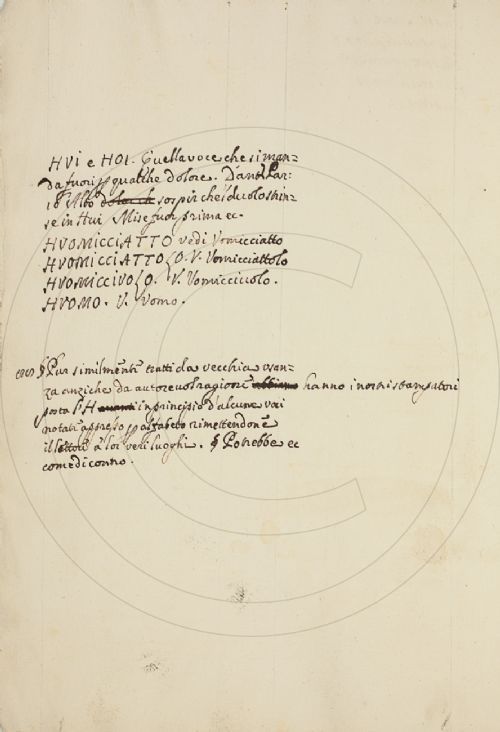 HVI e HOI. Quella voce che si man=
da fuori p qualche dolore. Dant. Par:
16 sospir che 'duolo strin=
se in Hui Mise fuor prima ec.
HVOMICCIATTO vedi Vomicciatto
HVOMICCIATTOLO. V. Vomicciattolo
HVOMICCIVOLO. V. Vomiccivolo.
HVOMO. V. Vomo.
§ Pur similmte tratti da vecchia usan=
za anziche da autorevol ragione hanno i nostri stampatori
posta l'H in principio d'alcune voci
notate appresso p alfabeto rimettendone
il lettore a' loro veri luoghi. § Potrebbe ec
come di contro.